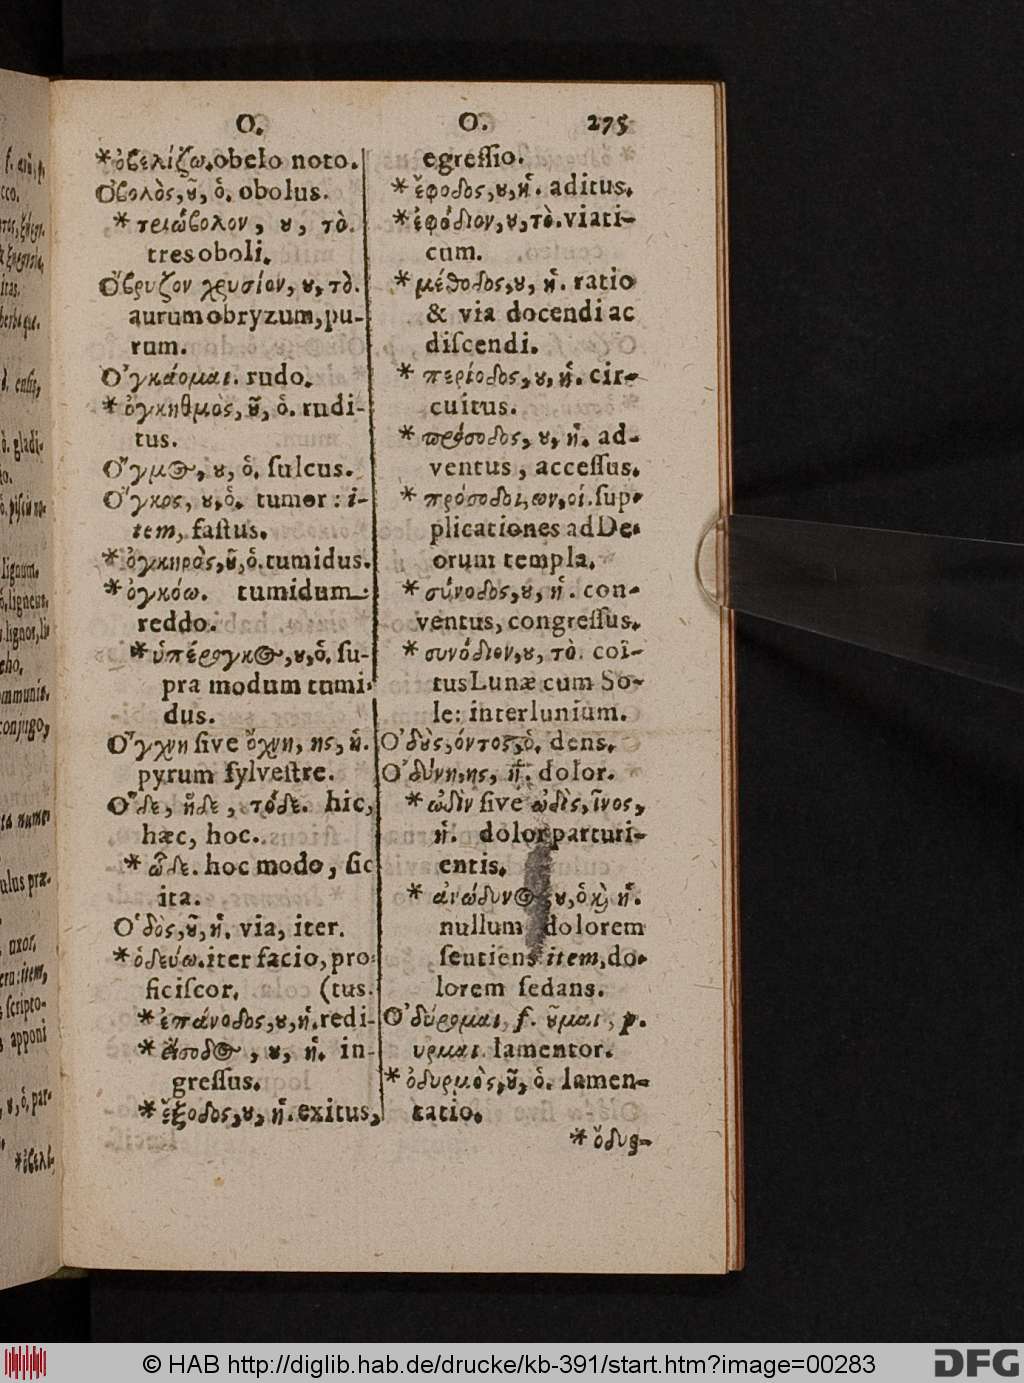 O.
*ὀβελίζω. obelo noto.
Ὀβολὸς, ȣ͂, ὁ. obolus.
*τριώβολον, ȣ, τὸ.
tres oboli.
Ὄβρυζον χρυσίον, ȣ, τὸ.
aurum obryzum, pu-
rum.
Ὀγκάομαι. rudo.
*ὀγκηθμὸς, ȣ͂, ὁ. rudi-
tus.
Ὄγμος, ȣ, ὁ. ſulcus.
Ὄγκος, ȣ, ὁ. tumor: i-
tem, faſtus.
*ὀγκηρὸς, ȣ͂, ὁ. tumidus.
*ὀγκόω. tumidum
reddo.
*ὑπέρογκος, ȣ, ὁ. ſu-
pra modum tumi-
dus.
Ὄγχνη ſive ὄχνη, ης, ἡ.
pyrum ſylveſtre.
Ὅδε, ἥδε, τόδε. hic,
hæc, hoc.
*ὧδε. hoc modo, ſic
ita.
Ὁδὸς, ȣ͂, ἡ. via, iter.
*ὁδεύω. iter facio, pro-
ficiſcor. (tus.
*ἐπάνοδος, ȣ, ἡ. redi-
*εἴσοδος, ȣ, ἡ. in-
greſſus.
*ἔξοδος, ȣ, ἡ. exitus,
O. 275
egreſſio.
*ἔφοδος, ȣ, ἡ. aditus.
*ἐφόδιον, ȣ, τὸ. viati-
cum.
*μέθοδος, ȣ, ἡ. ratio
& via docendi ac
diſcendi.
*περίοδος, ȣ, ἡ. cir-
cuitus.
*πρόσοδος, ȣ, ἡ. ad-
ventus, acceſſus.
*πρόσοδοι, ων, οἱ. ſup-
plicationes ad De-
orum templa.
*σύνοδος, ȣ, ἡ. con-
ventus, congreſſus.
*συνόδιον, ȣ, τὸ. coi-
tus Lunæ cum So-
le: interlunium.
Ὀδȣ̀ς, όντος, ὁ. dens.
Ὀδύνη, ης, ἡ. dolor.
*ὠδὶν ſive ὠδὶς, ῖνος,
ἡ. dolor parturi-
entis.
*ἀνώδυνος, ȣ, ὁ ϗ ἡ.
nullum dolorem
ſentiens item, do-
lorem ſedans.
Ὀδύρομαι, f. ȣ͂μαι, p.
υρμαι. lamentor.
*ὀδυρμὸς, ȣ͂, ὁ. lamen-
tatio.
*ὄδυρ-
f. ασω, p.
cco.
itas.
herbaque.
d. enſis,
ὁ. gladi-
io.
lignum.
ὁ. ligneus.
cho.
communis.
conjugo,
ulus præ-
uxor,
item,
ſcripto-
apponi
ȣ, ὁ. par-
*ὀβελί-
© HAB http://diglib.hab.de/drucke/kb-391/start.htm?image=00283
DFG